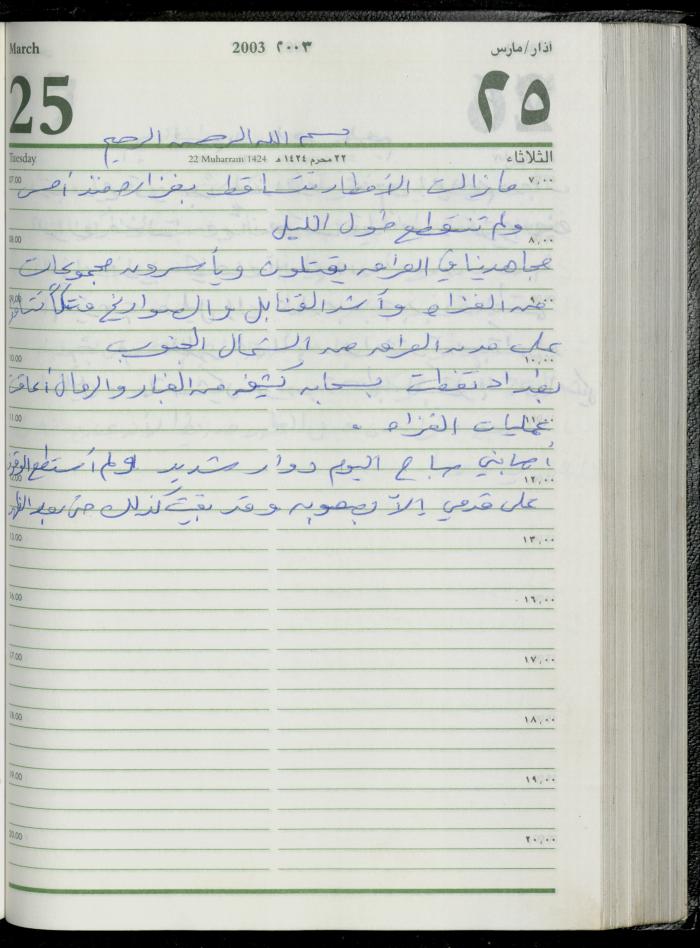 March 2003 ٢٠٠٣ اذار/مارس
25 ٢٥
بسم الله الرحمن الرحيم
Tuesday 22 Muharram 1424 ٢٢ محرم ١٤٢٤ هـ الثلاثاء
07.00 ٧,٠٠
ما زالت الأمطار تتساقط بغزارة منذ أمس
ولم تنقطع طول الليل
08.00 ٨,٠٠
مجاهدينا في العراق يقتلون ويأسرون مجموعات
من الغزاة وأشد القنابل والصواريخ فتكاً
على مدن العراق من الشمال الجنوب
10.00 ١٠,٠٠
بغداد تغطت بسحابه كثيفه من الغبار والرمال أعاقت
11.00 ١١,٠٠
عمليات الغزاة .
أصابني صباح اليوم دوار شديد ولم أستطع الوقوف
١٢,٠٠
على قدمي إلاّ بصعوبه وقد بقيت كذلك حتى بعد الظهر
13.00 ١٣,٠٠
16.00 ١٦,٠٠
17.00 ١٧,٠٠
18.00 ١٨,٠٠
19.00 ١٩,٠٠
20.00 ٢٠,٠٠